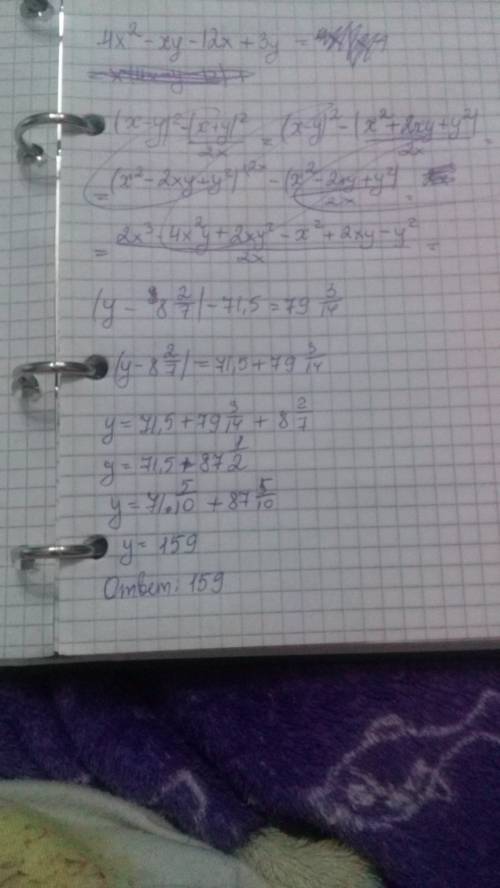 4x² - xy - 12x + 3y =
(x-y)² - (x+y)²/2x = (x-y)² - (x²+2xy+y²)/2x =
= (x² - 2xy + y²)^(2x - (x² - 2xy + y²)/2x =
= (2x³ - 4x²y + 2xy² - x² + 2xy - y²)/2x =
(y - 8 2/7) - 71,5 = 79 3/14
(y - 8 2/7) = 71,5 + 79 3/14
y = 71,5 + 79 3/14 + 8 2/7
y = 71,5 + 87 1/2
y = 71 5/10 + 87 5/10
y = 159
Ответ: 159